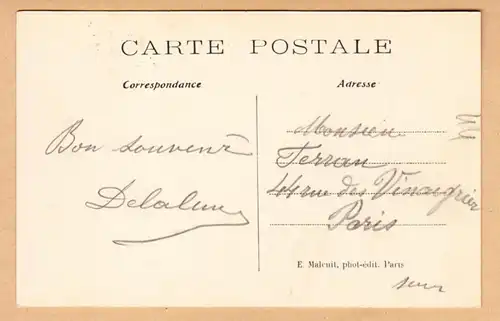 CARTE POSTALE
Correspondance
Adresse
Bon souvenir
Monsieur
Ferran
44 rue des Vinaigrier
Paris
E. Maleuit, phot-édit. Paris